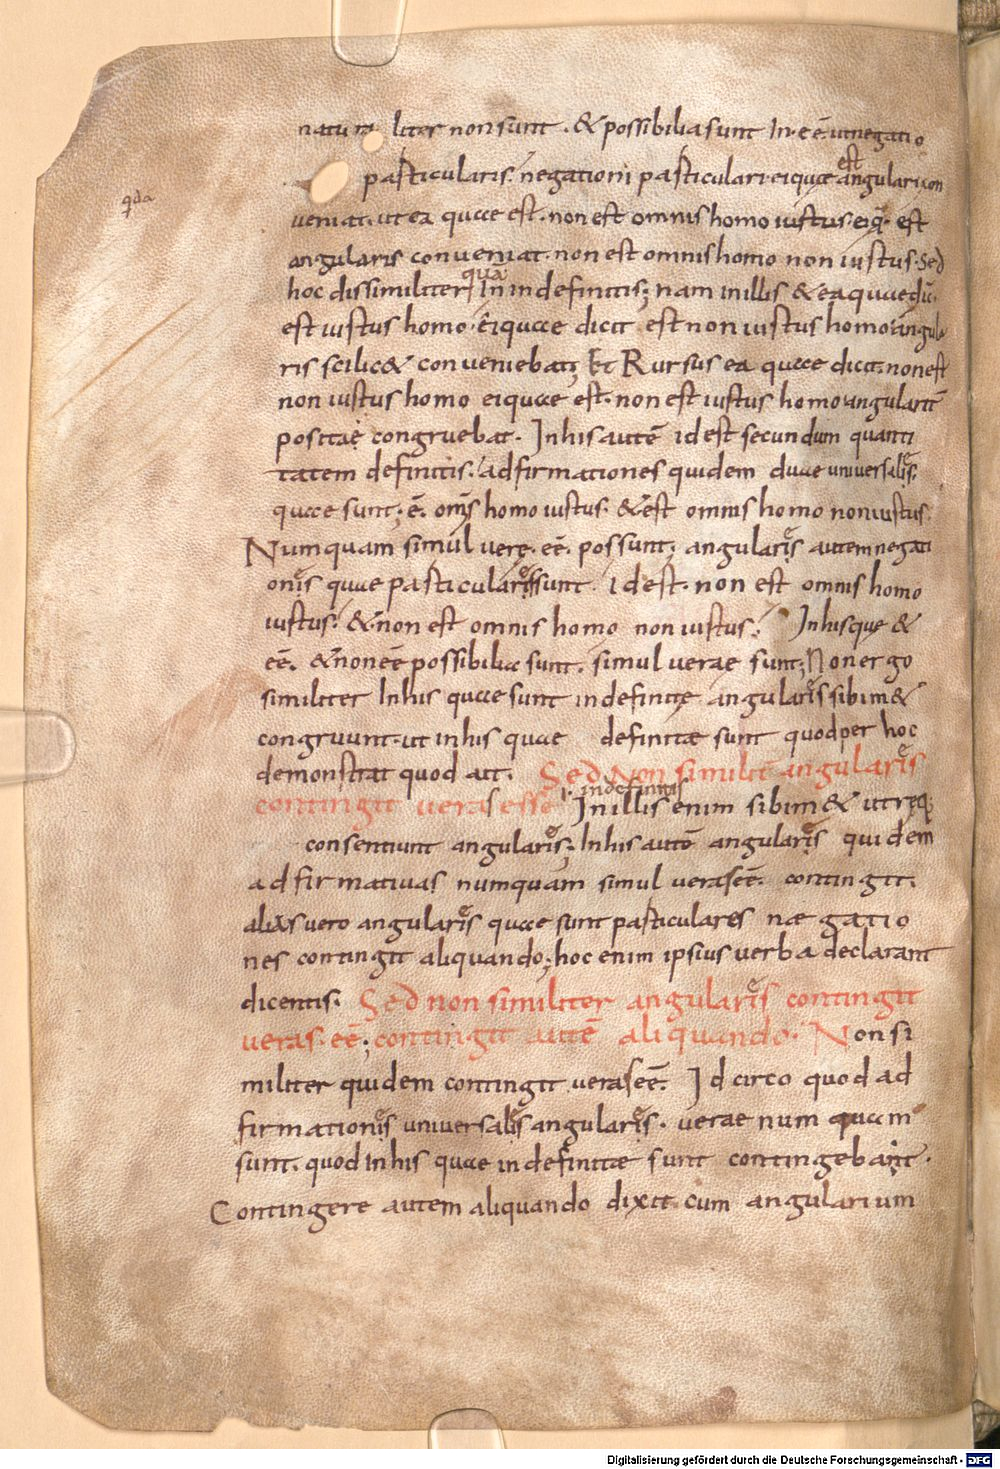 natura liter non sunt . & possibilia sunt In · e eē · ut negatio
particularis . negationi particulari · ei quae est angulari con
veniat . ut ea quae est . non est omnis homo iustus · ei q; est
angularis conveniat . non est omnis homo non iustus · Sed
hoc dissimiliter qua In indefinitis; nam in illis & ea quae
est iustus homo · ei quae dicit est non iustus homo angula
ris scilic& conveniebat; Et Rursus ea quae dicit . non est
non iustus homo ei quae est . non est iustus homo angularit̄
positae congruebat . In his autē id est secundum quanti
tatem definitis . adfirmationes quidem duae universalęs .
quae sunt . ē . om̄s homo iustus . & est omnis homo non iustus .
Numquam simul verę . eē . possunt; angularęs autem negati
onęs quae particularęs sunt . id est . non est omnis homo
iustus . & non est omnis homo non iustus; In hisque &
eē . & non eē possibiliae sunt . simul verae sunt; Non ergo
similiter In his quae sunt indefinitę angularęs sibim&
congruunt . ut in his quae definitae sunt quod per hoc
demonstrat quod ait . Sed Non similit̄ angularęs
contingit veras esse . i . indefinitis In illis enim sibim& utręq;
consentiunt angularęs; In his autē angularęs quidem
adfirmativas numquam simul veras eē . contingit .
alias vero angularęs quae sunt particulares naegatio
nes contingit aliquando; hoc enim ipsius verba declarant
dicentis . Sed non similiter angularęs contingit
veras . eē; contingit autē aliquando . Non si
militer quidem contingit veras eē . Idcirco quod ad
firmationęs universalęs angularęs . verae numquam
sunt . quod in his quae indefinitae sunt contingebant .
Contingere autem aliquando dixit cum angularium